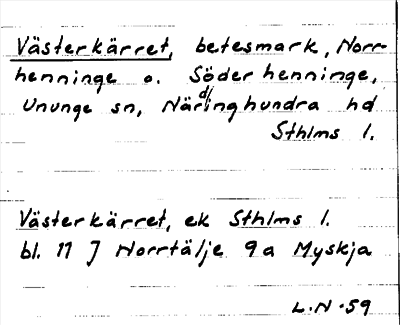 Västerkärret, betesmark, Norr-
henninge o. Söderhenninge,
Ununge sn, Närdinghundra hd
Sthlms l.
Västerkärret, ek Sthlms l.
bl. 11 J Norrtälje 9a Myskja
L.N-59